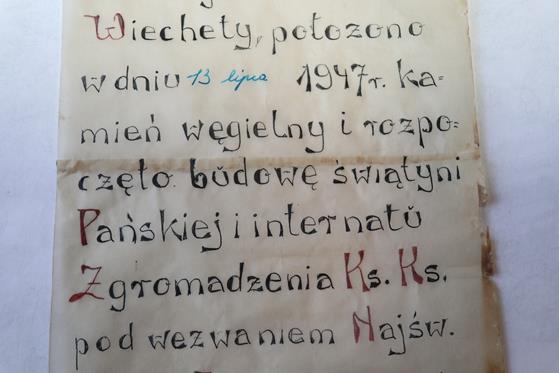 Wiechety, położono
w dniu 13 lipca 1947r. ka=
mień węgielny i rozpo=
częto budowę świątyni
Pańskiej i internatu
Zgromadzenia Ks. Ks.
pod wezwaniem Najśw.